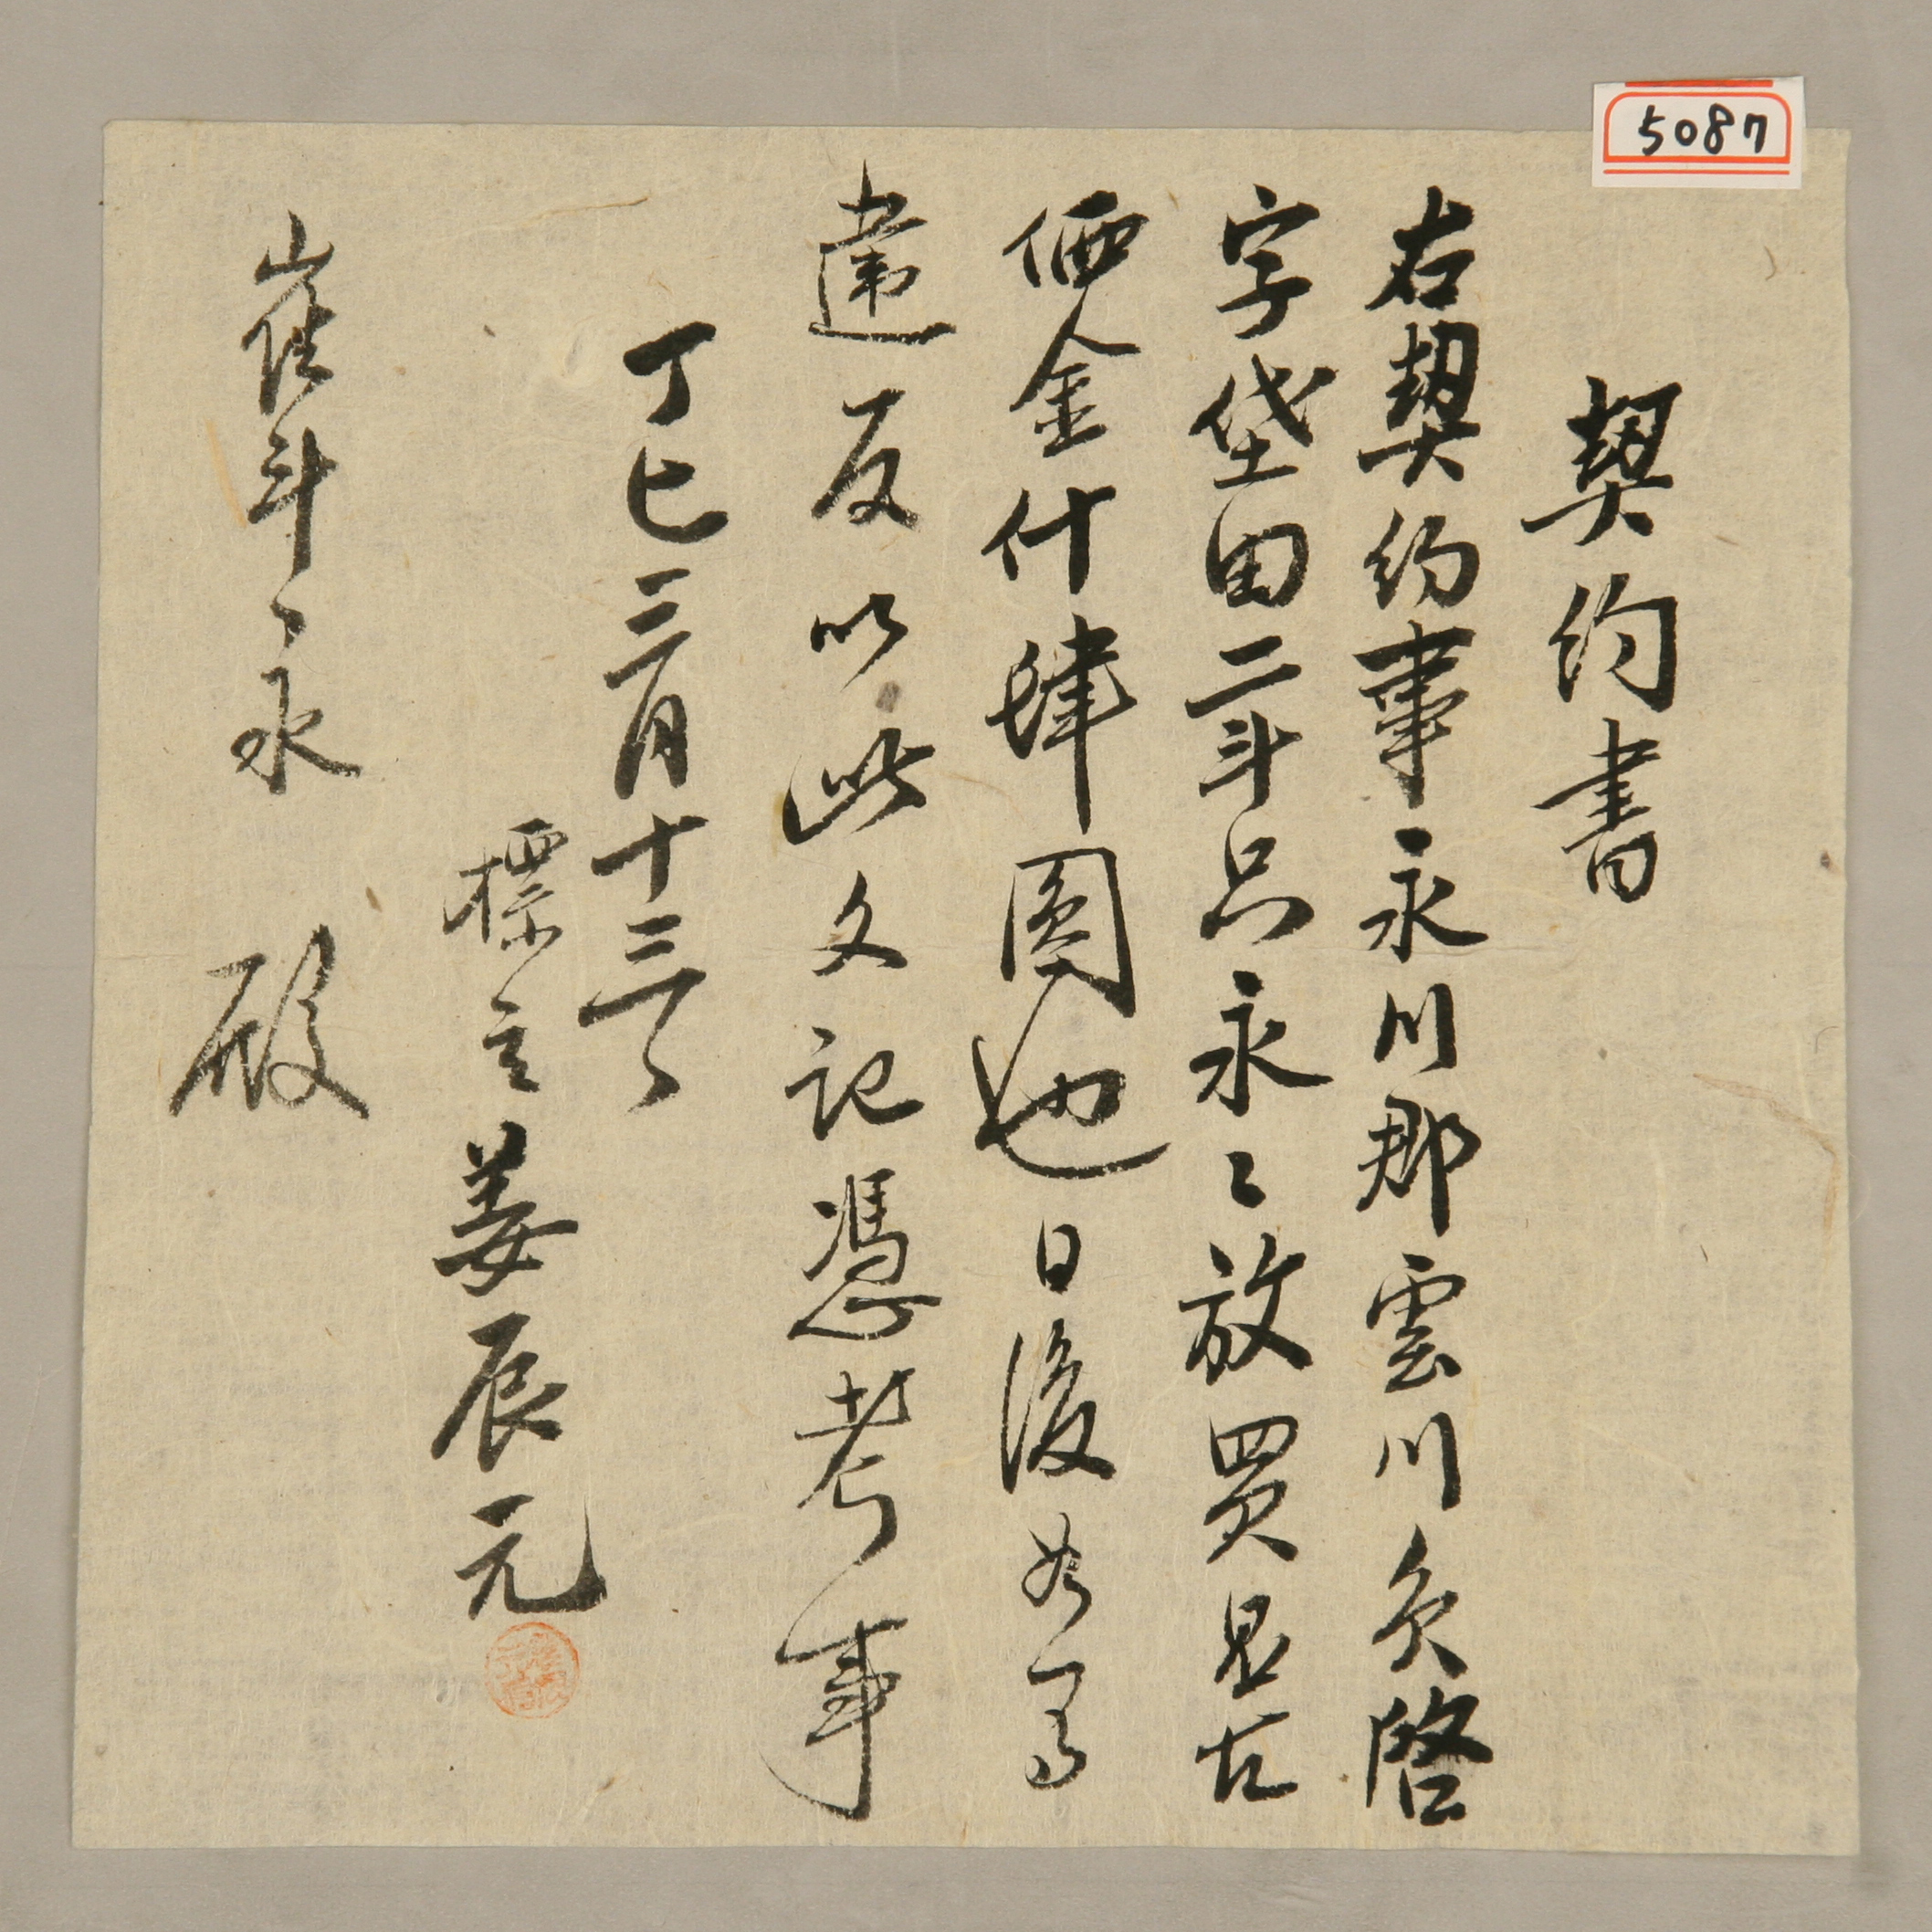 5087
契約書
右契約事永川郡雲川員啓
字垈田二斗只永〻放買是在
価金什肆圓也日後如有
違反以此文記憑考事
丁巳三月十三日
標主姜辰元
崔斗永 殿